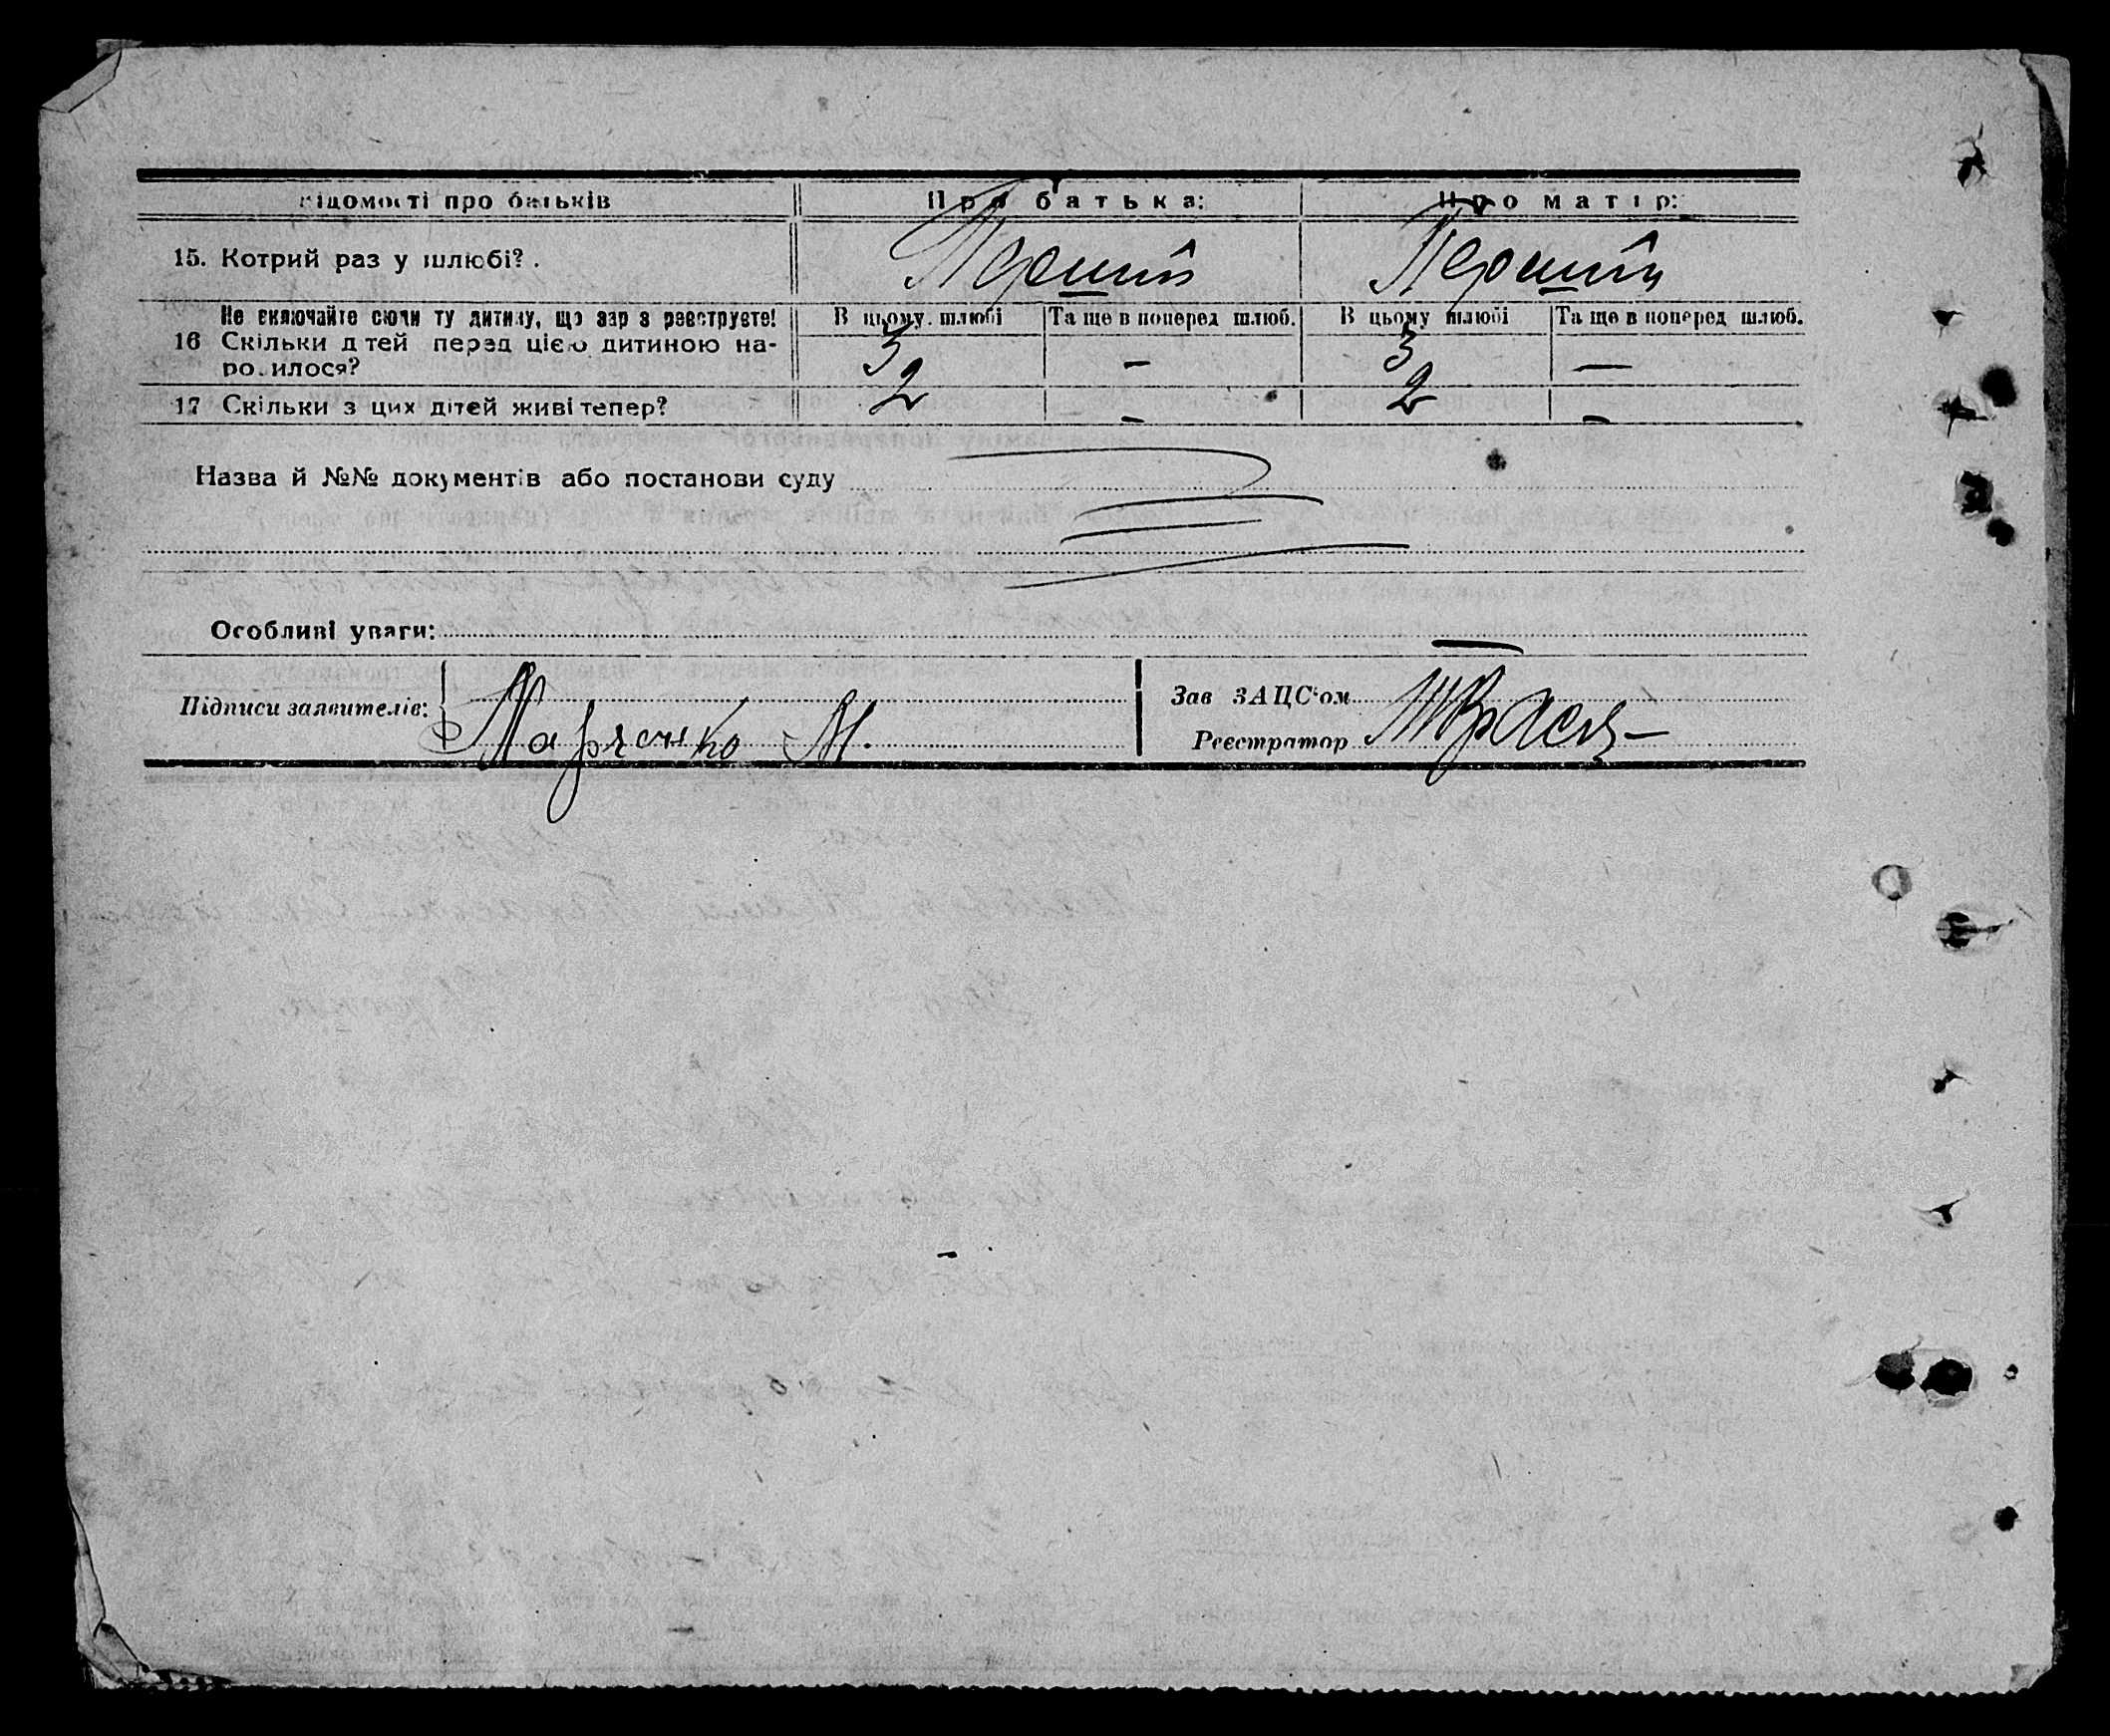 Відомості про батьків Про батька: Про матір:
15. Котрий раз у шлюбі? . Перший Перший
Не включайте сюди ту дитину, що зараз реєструєте! В цьому шлюбі Та ще в поперед шлюб. В цьому шлюбі Та ще в поперед шлюб.
16 Скільки дітей перед цією дитиною на-
родилося? 3 — 3 —
17 Скільки з цих дітей живі тепер? 2 — 2 —
Назва й №№ документів або постанови суду
Особливі уваги: —
Підписи заявителів: Зав ЗАЦС'ом
Марченко М. Реєстратор